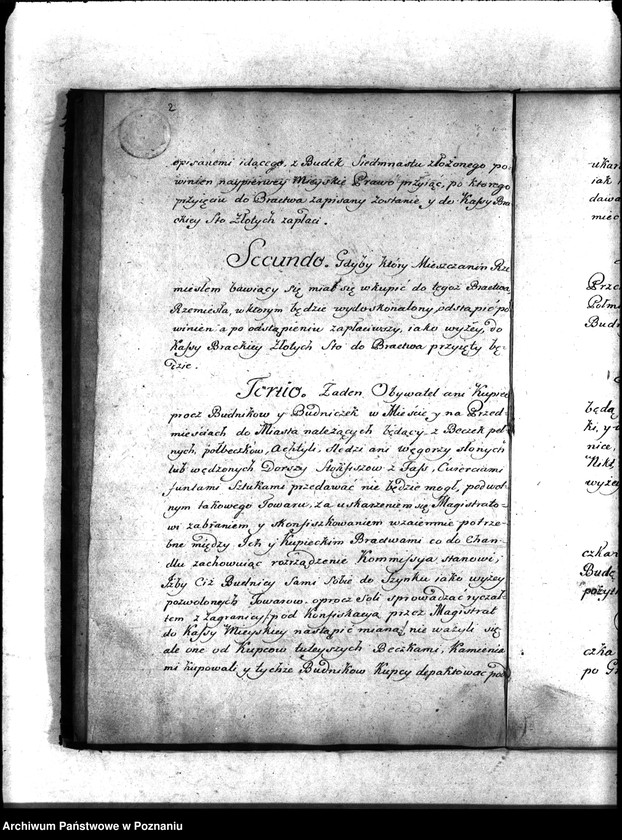 2
opisanemi idącego, z Budek Siedmnastu złożonego po-
winien naypierwey Mieyskie Prawo przyiąc, po ktorego
przyięciu do Bractwa zapisany zostanie y do Kassy Bra-
ckiey Sto Złotych zapłaci.
Secundo. Gdyby który Mieszczanin Rze-
miesłem bawiący się miał się wkupić do tegoż Bractwa
Rzemiesła, w ktorym będzie wydoskonalony odstąpić po-
winien a po odstąpieniu zapłaciwszy, iako wyżey, do
Kassy Brackiey Złotych Sto do Bractwa przyięty bę-
dzie.
Tertio. Zaden Obywatel ani Kupiec
procz Budnikow y Budniczek w Mieście y na Przed-
mieściach do Miasta należących będący z Beczek peł-
nych, połbeczkow, Achtyli, Sledzi ani węgorzy słonych
lub wędzonych Dorszy Stokfiszow z Fass, Cwierciami
funtami Sztukami przedawać nie będzie mogł, pod wol-
nym takowego Towaru, za uskarzeniem się Magistrato-
wi zabraniem y skonfiszkowaniem wzaiemnie potrze-
bne między Ich y Kupieckim Bractwami co do Chan-
dlu zachowuiąc rozrządzenie Kommissya stanowi,
Ażby Ciż Budnicy Sami Sobie do Szynku iako wyżey
pozwolonych Towarow oprocz Soli sprowadzać ryczał-
tem z zagranicy pod konfiskacyą przez Magistrat
do Kassy Mieyskiey nastąpić mianą nie ważyli się
ale one od Kupcow tuteyszych Beczkami, Kamienia-
mi kupowali y tychże Budnikow Kupcy depaktować pod
ukar
iak
dawa
miec
Przed
Połm
Budn
będą
ki, y
nice,
Nikt
wyżey
czka
Budę
pożyt
czka
po G
Archiwum Państwowe w Poznaniu